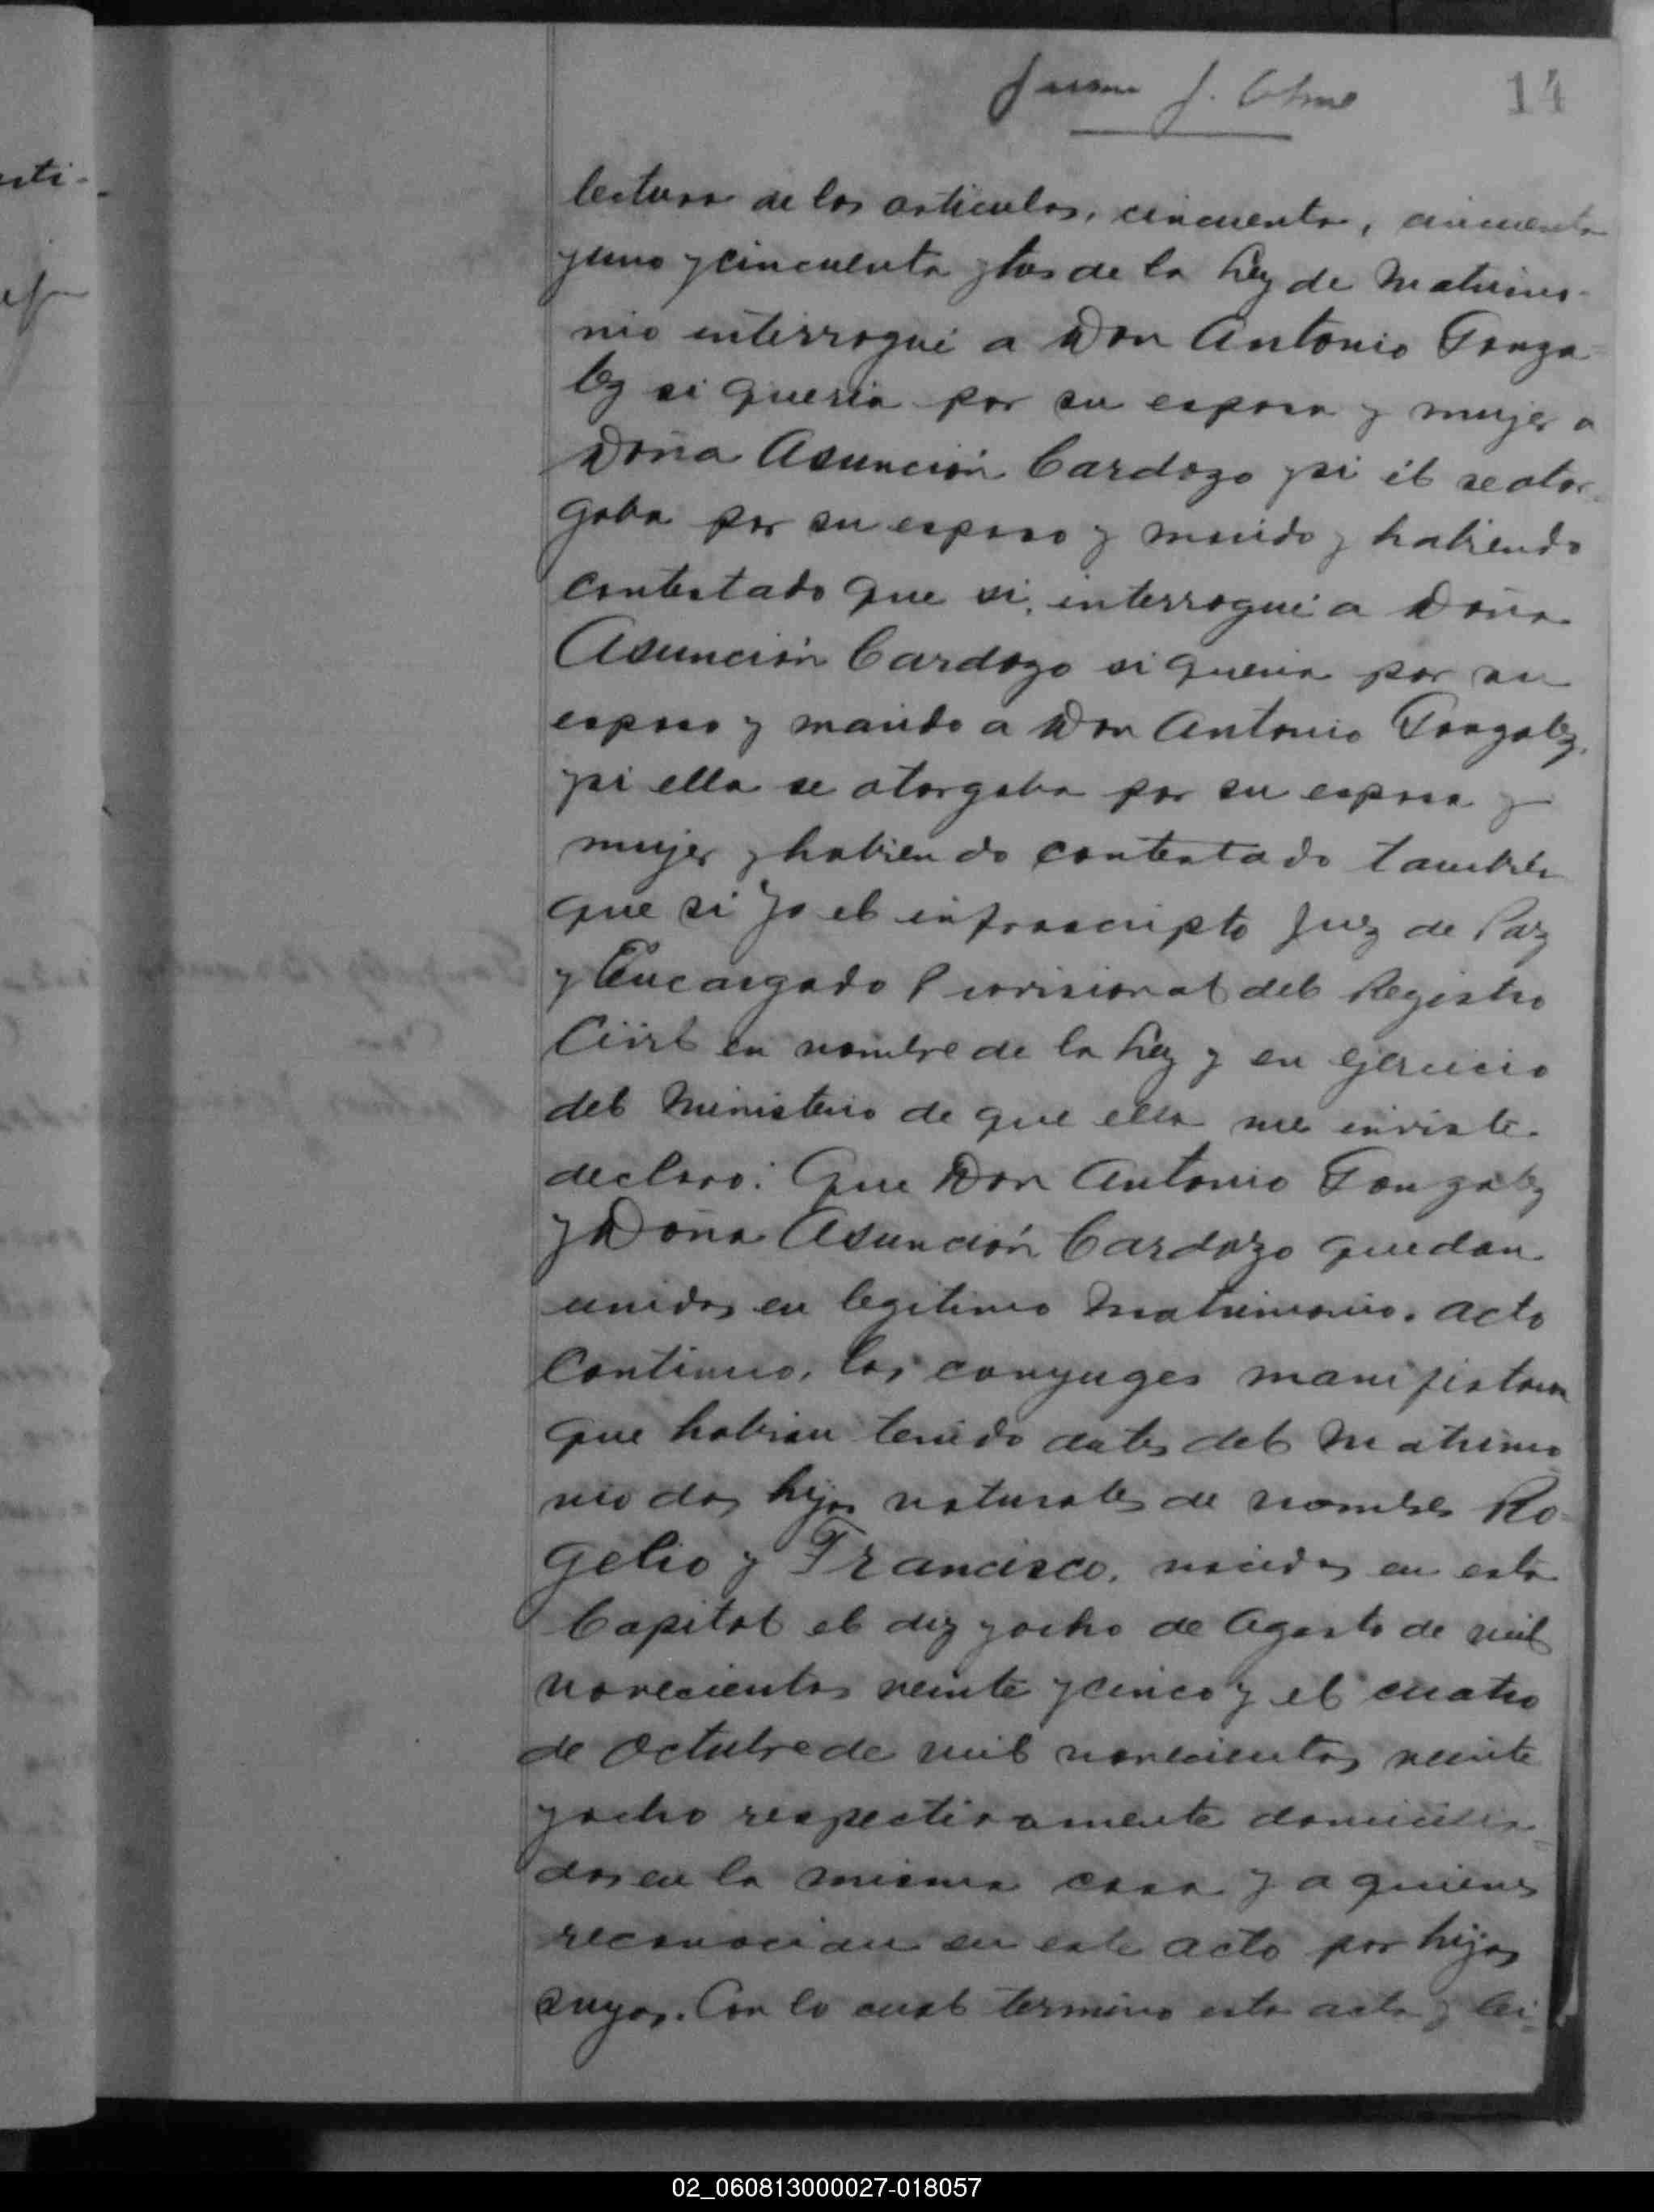 14
lectura de los articulos, cincuenta, cincuenta
y uno y cincuenta y tos de la Ley de Matrimo-
nio interrogué a Don Antonio Gonza-
lez si queria por su esposa y mujer a
Doña Asunción Cardozo y si él se otor-
gaba por su esposo y marido y habiendo
contestado que si, interrogué a Doña
Asunción Cardozo si queria por su
esposo y marido a Don Antonio Gonzalez,
y si ella se otorgaba por su esposa y
mujer y habiendo contestado también
que si Yo el infrascripto Juez de Paz
y Encargado Provisional del Registro
Civil en nombre de la Ley y en ejercicio
del Ministerio de que ella me inviste
declaro: Que Don Antonio Gonzalez
y Doña Asunción Cardozo quedan
unidos en legitimo Matrimonio. Acto
Continuo, los conyuges manifestaron
que habian tenido antes del Matrimo
nio dos hijos naturales de nombres Ro-
gelio y Francisco, nacidos en esta
Capital el diez y ocho de Agosto de mil
novecientos veinte y cinco y el cuatro
de Octubre de mil novecientos veinte
y ocho respectivamente domicilia-
dos en la misma casa y a quienes
reconocian en este acto por hijos
suyos. Con lo cual termino esta acta y lei-
02_060813000027-018057